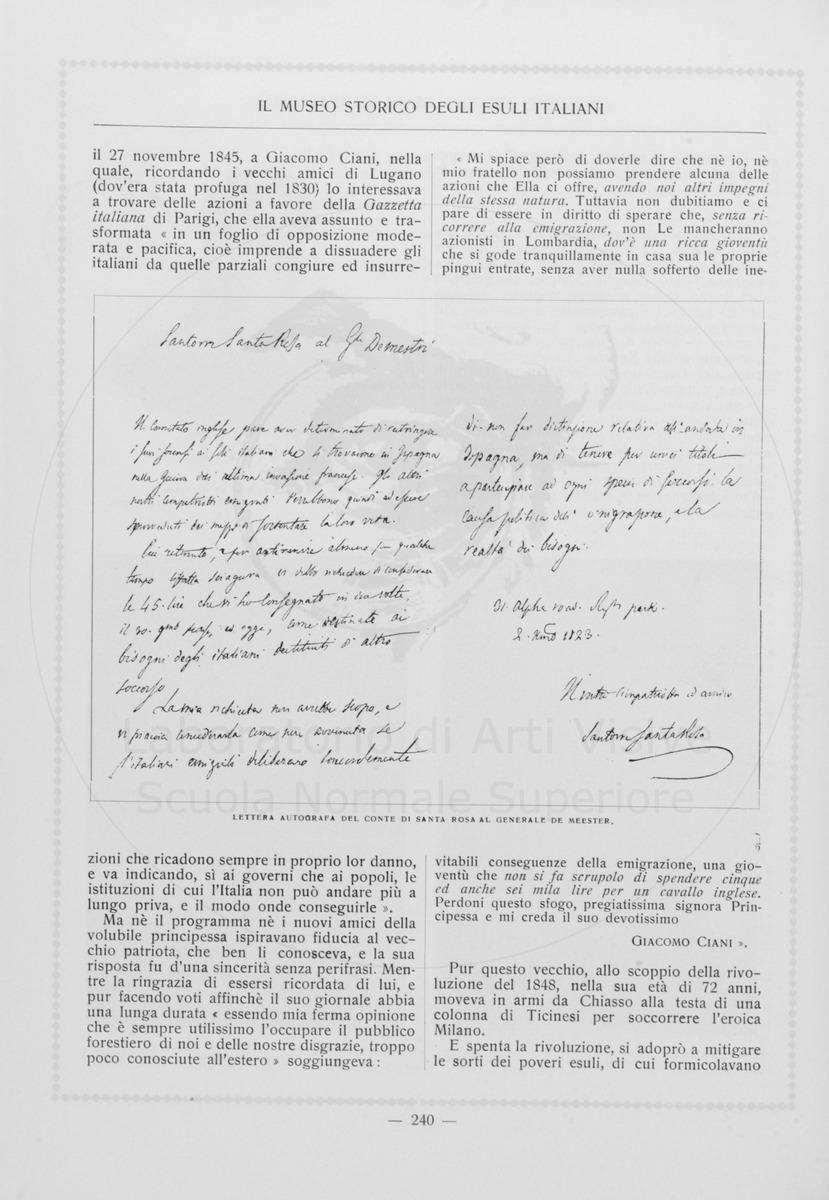 IL MUSEO STORICO DEGLI ESULI ITALIANI
il 27 novembre 1845, a Giacomo Ciani, nella
quale, ricordando i vecchi amici di Lugano
(dov'era stata profuga nel 1830) lo interessava
a trovare delle azioni a favore della Gazzetta
italiana di Parigi, che ella aveva assunto e tra-
sformata « in un foglio di opposizione mode-
rata e pacifica, cioè imprende a dissuadere gli
italiani da quelle parziali congiure ed insurre-
« Mi spiace però di doverle dire che nè io, nè
mio fratello non possiamo prendere alcuna delle
azioni che Ella ci offre, avendo noi altri impegni
della stessa natura. Tuttavia non dubitiamo e ci
pare di essere in diritto di sperare che, senza ri-
correre alla emigrazione, non Le mancheranno
azionisti in Lombardia, dov'è una ricca gioventù
che si gode tranquillamente in casa sua le proprie
pingui entrate, senza aver nulla sofferto delle ine-
Santorre Santa Rosa al
Il Comitato inglese pare aver determinato di restringere
i suoi soccorsi ai soli italiani che si trovarono in Ispagna
nella guerra dell' ultima invasione francese. Gli altri
nostri compatriotti emigrati verrebbono quindi ad essere
sprovveduti dei mezzi di sostentare la loro vita.
tempo siffatta sciagura vi debbo richiedere di considerare
le 45. lire che vi ho consegnato in due volte,
il 20. scorso, ed oggi, come destinate ai
bisogni degli italiani destituti di altro
soccorso
La mia richiesta non avrebbe scopo, e
vi prego considerarla come non avvenuta se
gl'italiani emigrati deliberano concordemente
di non far distinzione relativa all'andata in
Ispagna, ma di tenere per unici titoli
a partecipare ad ogni specie di soccorsi la
causa politica dell' emigrazione, e la
realtà dei bisogni.
Alpha road. park.
2. 1823.
Il vostro compatriotta ed amico
Santorre Santa Rosa
LETTERA AUTOGRAFA DEL CONTE DI SANTA ROSA AL GENERALE DE MEESTER.
zioni che ricadono sempre in proprio lor danno,
e va indicando, sì ai governi che ai popoli, le
istituzioni di cui l'Italia non può andare più a
lungo priva, e il modo onde conseguirle ».
Ma nè il programma nè i nuovi amici della
volubile principessa ispiravano fiducia al vec-
chio patriota, che ben li conosceva, e la sua
risposta fu d'una sincerità senza perifrasi. Men-
tre la ringrazia di essersi ricordata di lui, e
pur facendo voti affinchè il suo giornale abbia
una lunga durata « essendo mia ferma opinione
che è sempre utilissimo l'occupare il pubblico
forestiero di noi e delle nostre disgrazie, troppo
poco conosciute all'estero » soggiungeva :
vitabili conseguenze della emigrazione, una gio-
ventù che non si fa scrupolo di spendere cinque
ed anche sei mila lire per un cavallo inglese.
Perdoni questo sfogo, pregiatissima signora Prin-
cipessa e mi creda il suo devotissimo
GIACOMO CIANI ».
Pur questo vecchio, allo scoppio della rivo-
luzione del 1848, nella sua età di 72 anni,
moveva in armi da Chiasso alla testa di una
colonna di Ticinesi per soccorrere l'eroica
Milano.
E spenta la rivoluzione, si adoprò a mitigare
le sorti dei poveri esuli, di cui formicolavano
— 240 —
di Arti
Scuola Normale Superiore